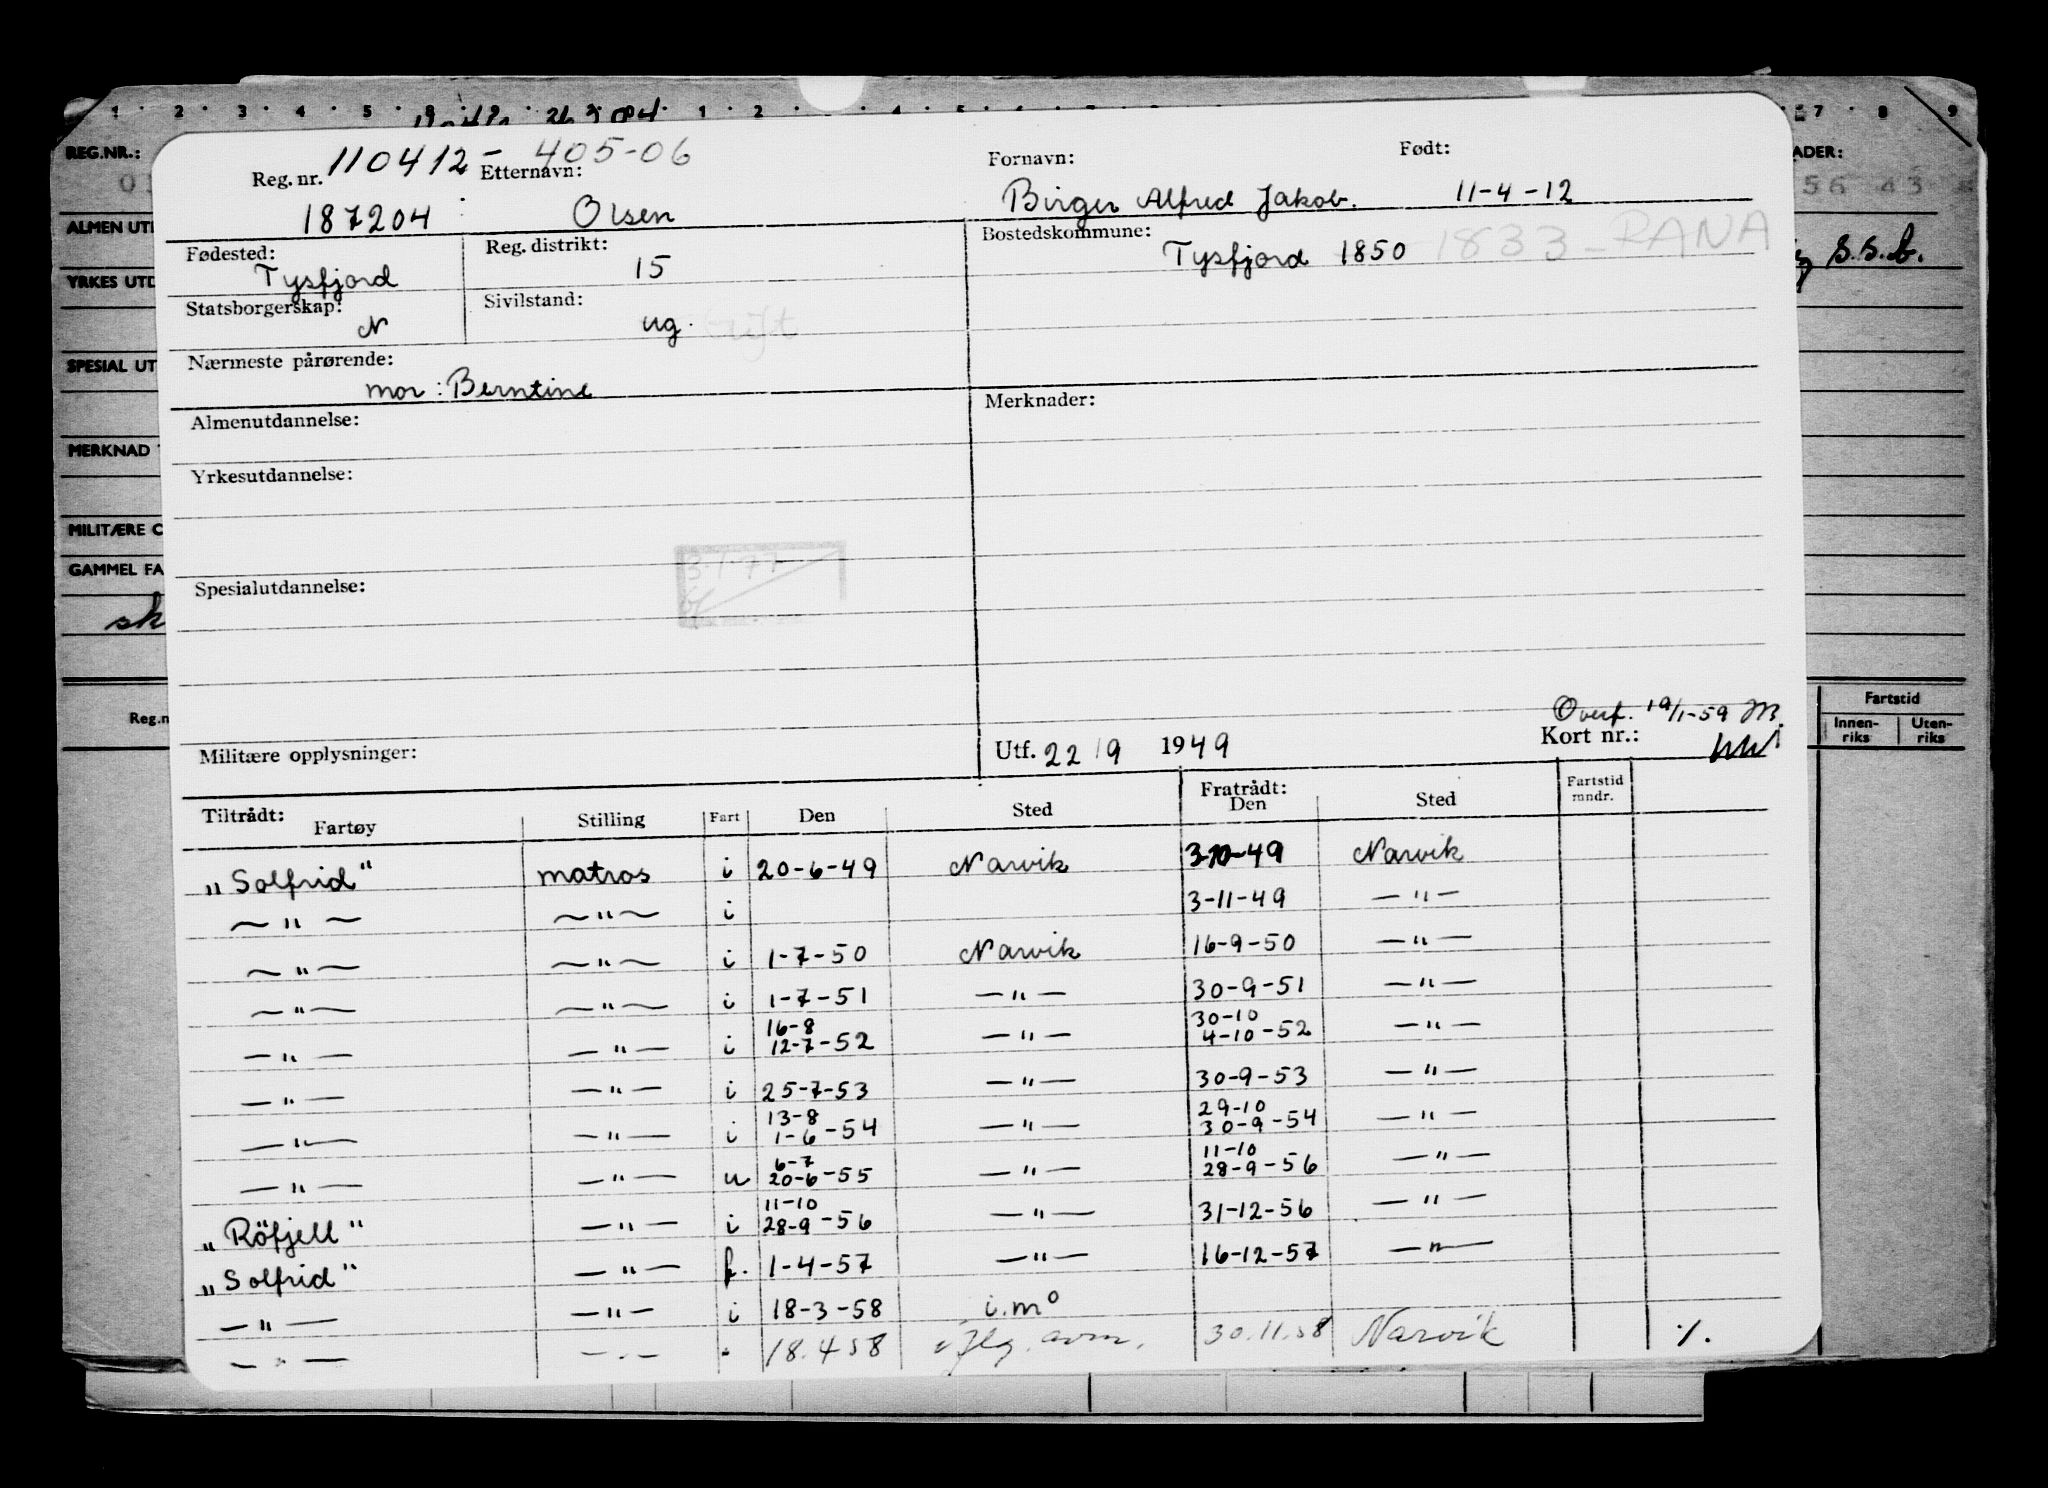 1 · 2 · 3 · 4 · 5 · 1 · 2 · 4 · 5 · 7 · 8 · 9
REG.NR.:
ALMEN UT
YRKES UTD
SPESIAL UT
MERKNAD
MILITÆRE
GAMMEL FA
sk
Reg.n
ADER:
56 43
s.s.b.
Fartstid
Innen-riks Uten-riks
Reg. nr. 110412- 405-06 Etternavn: Fornavn: Født:
187204 Olsen Birger Alfred Jakob. 11-4-12
Fødested: Reg. distrikt: Bostedskommune:
Tysfjord 15 Tysfjord 1850 1833-RANA
Statsborgerskap: Sivilstand:
N ug. gift
Nærmeste pårørende:
mor: Berntine
Almenutdannelse: Merknader:
Yrkesutdannelse:
3.1.77
Spesialutdannelse:
Overf. 19/1-59 M.
Militære opplysninger: Utf. 22/9 1949 Kort nr.:
Tiltrådt: Fratrådt:
Fartøy Stilling Fart Den Sted Den Sted Fartstid mndr.
"Solfrid" matros i 20-6-49 Narvik 3-10-49 Narvik
—"— —"— i 3-11-49 —"—
—"— —"— i 1-7-50 Narvik 16-9-50 —"—
—"— —"— i 1-7-51 —"— 30-9-51 —"—
16-8 30-10
—"— —"— i 12-7-52 —"— 4-10-52 —"—
—"— —"— i 25-7-53 —"— 30-9-53 —"—
13-8 29-10
—"— —"— i 1-6-54 —"— 30-9-54 —"—
6-7 11-10
—"— —"— u 20-6-55 —"— 28-9-56 —"—
11-10
"Röfjell" —"— i 28-9-56 —"— 31-12-56 —"—
"Solfrid" —"— f. 1-4-57 —"— 16-12-57 —"—
—"— —"— i 18-3-58 i.mº
—"— —"— " 18.4 58 30.11.58 Narvik ·/.